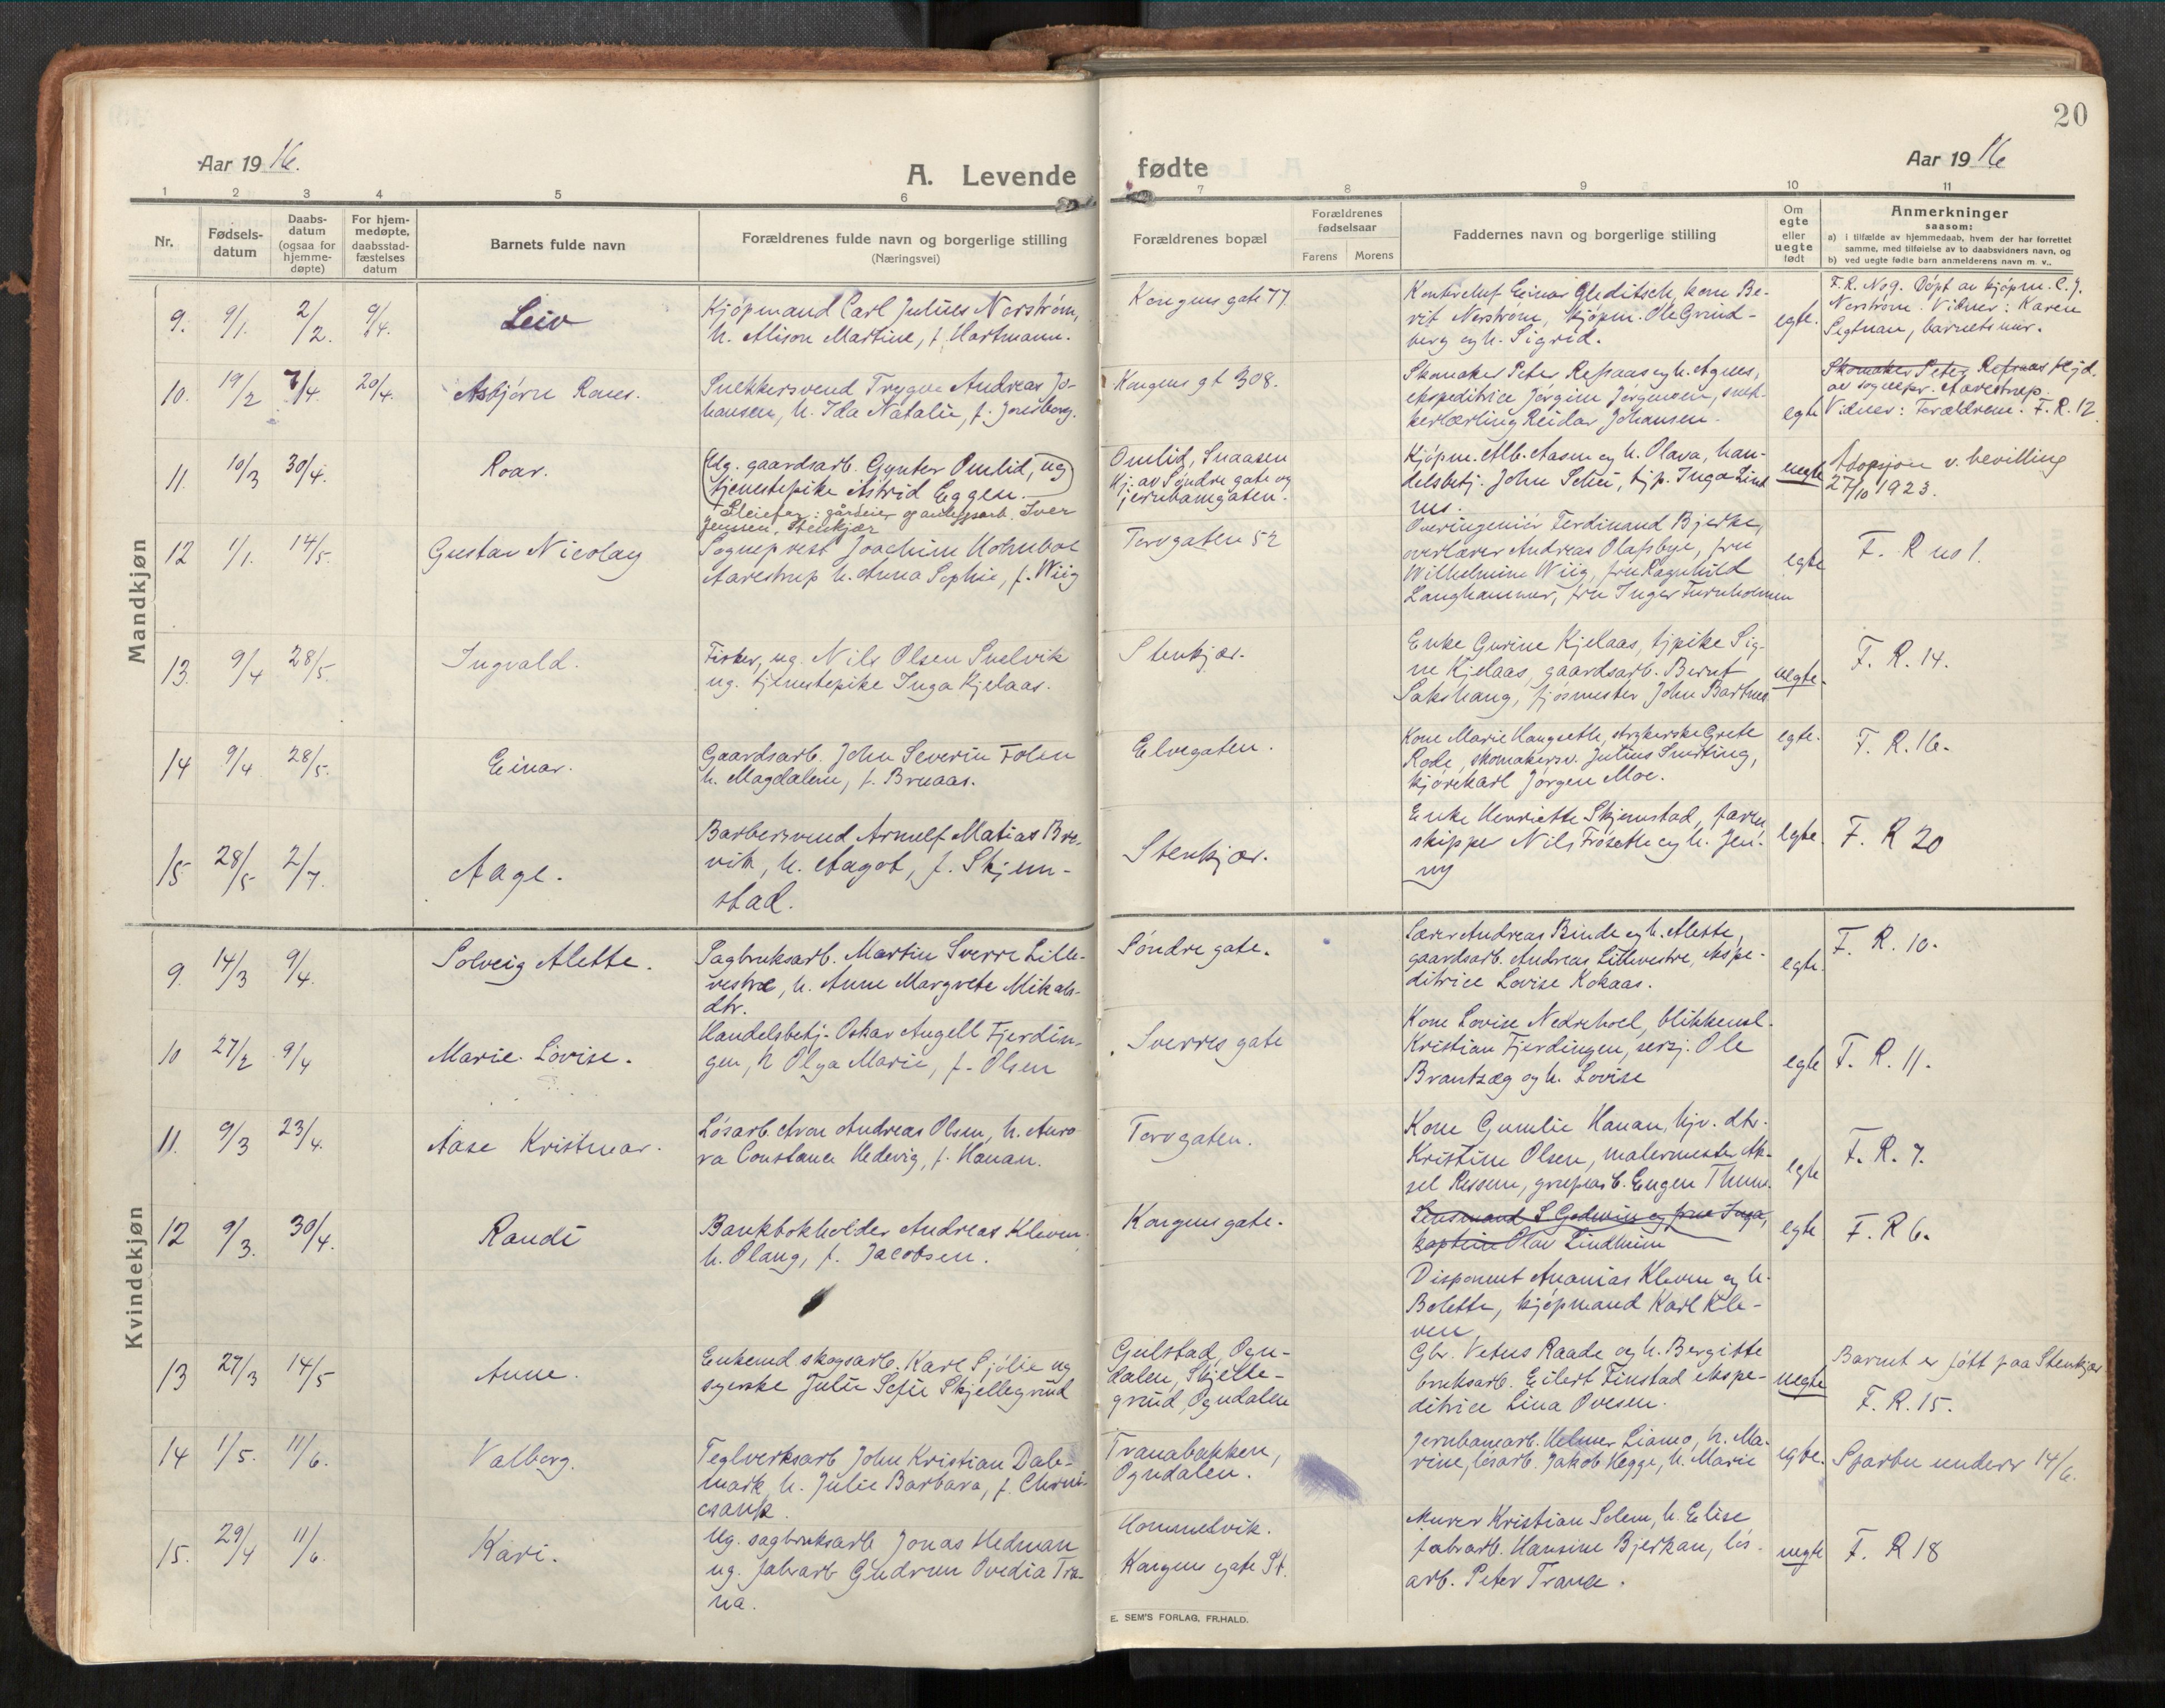 20
Aar 1916.
A. Levende
fødte
Aar 1916
1 2 3 4 5 6
7 8 9 10 11
Nr.
Fødsels-
datum
Daabs-
datum
(ogsaa for
hjemme-
døpte)
For hjem-
medøpte,
daabsstad-
fæstelses
datum
Barnets fulde navn
Forældrenes fulde navn og borgerlige stilling
(Næringsvei)
Forældrenes bopæl
Forældrenes
fødselsaar
Farens Morens
Faddernes navn og borgerlige stilling
Om
egte
eller
uegte
født
Anmerkninger
saasom:
a) i tilfælde av hjemmedaab, hvem der har forrettet
samme, med tilføielse av to daabsvidners navn, og
b) ved uegte fødte barn anmelderens navn m. v..
Mandkjøn
9. 9/1. 2/2. 9/4. Leiv
Kjøpmand Carl Julius Norstrøm,
h. Alison Martine, f. Hartmann.
Kongens gate 77
Kontorchef Einar Gleditsch, kone Be-
rit Norstrøm, kjøpm. Ole Grind-
berg og h. Sigrid.
egte.
F.R. No 9. Døpt av kjøpm. C. J.
Norstrøm. Vidner: Karen
Segtnan, barnets mor.
10. 19/2 7/4. 20/4. Asbjørn Raus.
Snekkersvend Trygve Andreas Jo-
hansen, h. Ida Natalie, f. Jonsborg.
Kongens gt 308.
Skomaker Peter Refsaas og h. Agnes,
ekspeditrice Jørgine Jørgensen, snek-
kerlærling Reidar Johansen.
egte
Skomaker Peter Refsaas Hjd.
av sognepr. Aarestrup.
Vidner: Forældrene. F. R. 12
11. 10/3 30/4. Roar.
Ug. gaardsarb. Gynter Omlid, ug
tjenestepike Astrid Eggen.
Pleiefar: gårdeier og anleggsarb. Iver
Jenssen, Stenkjær
Omlid, Snaasen
Hj. av Søndre gate og
jernbanegaten.
Kjøpm. Alb. Aasen og h. Olava, han-
delsbetj. John Schei, tjp. Inga Lind
nes.
uegte
Adopsjon v. bevilling
27/10 1923.
12 1/1. 14/5. Gustav Nicolay
Sogneprest Joachim Hohnboe
Aarestrup h. Anna Sophie, f. Wiig
Torvgaten 52
Overingeniør Ferdinand Bjerke,
overlærer Andreas Olafsbye, fru
Wilhelmine Wiig, fru Ragnhild
Langhammer, fru Inger Furuholmen
egte
F. R no 1.
13. 9/4 28/5. Ingvald.
Fisker, ug. Nils Olsen Snelvik
ug. tjenestepike Inga Kjelaas.
Stenkjær.
Enke Gurine Kjelaas, tjpike Sig-
ne Kjelaas, gaardsarb. Bernt
Sakshaug, fjøsmester John Bartnes
uegte.
F. R. 14.
14 9/4 28/5. Einar.
Gaardsarb. John Severin Folen
h. Magdalene, f. Bruaas.
Elvegaten.
Kone Marie Haugseth, strykerske Grete
Rode, skomakersv. Julius Smiting,
kjørekarl Jørgen Moe.
egte.
F. R. 16.
15 28/5 2/7. Aage.
Barbersvend Arnulf Matias Bre-
vik, h. Aagot, f. Skjem-
stad.
Stenkjær.
Enke Henriette Skjemstad,
skipper Nils Frøseth og h. Jen-
ny
egte.
F. R 20
Kvindekjøn
9. 14/3 9/4. Solveig Alette.
Sagbruksarb. Martin Sverre Lille-
vestre, h. Anne Margrete Mikals-
dtr.
Søndre gate.
Lærer Andreas Binde og h. Alette,
gaardsarb. Andreas Lillevestre, ekspe-
ditrice Lovise Kokaas.
egte.
F. R. 10.
10 27/2 9/4 Marie Lovise.
Handelsbetj. Oskar Angell Fjerdin-
gen, h Olga Marie, f. Olsen
Sverres gate
Kone Lovise Nedrehoel, blikkensl.
Kristian Fjerdingen, sersj. Ole
Brantzæg og h. Lovise
egte
F. R. 11.
11. 9/3 23/4. Aase Kristmar.
Løsarb. Aron Andreas Olsen, h. Auro
ra Constance Hedevig, f. Hanan.
Torvgaten.
Kone Gunelie Hanan, hjv. dtr.
Kristine Olsen, malermester Ak-
sel Ressem, grupearb. Eugen Thune.
egte
F. R. 7.
12 9/3. 30/4. Randi
Bankbokholder Andreas Kleven
h. Olaug, f. Jacobsen.
Kongens gate.
Lensmand S Godwin og frue Inga,
kaptein Olav Lindheim
Disponent Ananias Kleven og h.
Bolette, kjøpmand Karl Kle-
ven
egte
F. R 6.
13 27/3 14/5 Anne.
Enkemd. skogsarb. Karl Sjølie ug
syerske Julie Sofie Skjellegrind
Gulstad, Ogn-
dalen, Skjelle-
grind, Ogndalen
Gbr. Vetus Raade og h. Bergitte
bruksarb. Eilert Finstad ekspe-
ditrice Lina Ovesen.
uegte
Barnet er født paa Stenkjær
F. R. 15.
14 1/5. 11/6. Valborg.
Teglverksarb John Kristian Dale-
mark, h. Julie Barbara, f.
Tranabakken,
Ogndalen.
Jernbanearb. Helmer Liamo, h. Ma-
rine, løsarb. Jakob Hegge, h. Marie
egte.
Sparbu underr 14/6.
15. 29/4 11/6. Kari.
Ug. sagbruksarb Jonas Hedman
ug. fabrarb Gudrun Ovedia Tra-
na.
Hommelvik.
Kongens gate St.
Murer Kristian Solem, h. Elise
fabrarb. Hansine Bjerkan, løs-
arb. Peter Trana.
uegte
F. R 18
E. SEM'S FORLAG, FR.HALD.